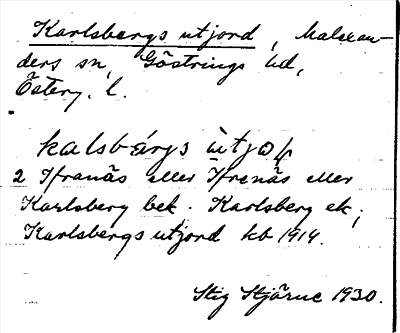 Karlsbergs utjord, Malexan-
ders sn, Göstrings hd,
Österg. l.
kalsbárgs ùtjoḷ
2 Ifranäs eller Ifrenäs eller
Karlsberg bek. Karlsberg ek;
Karlsbergs utjord kb 1914.
Stig Stjärne 1930.